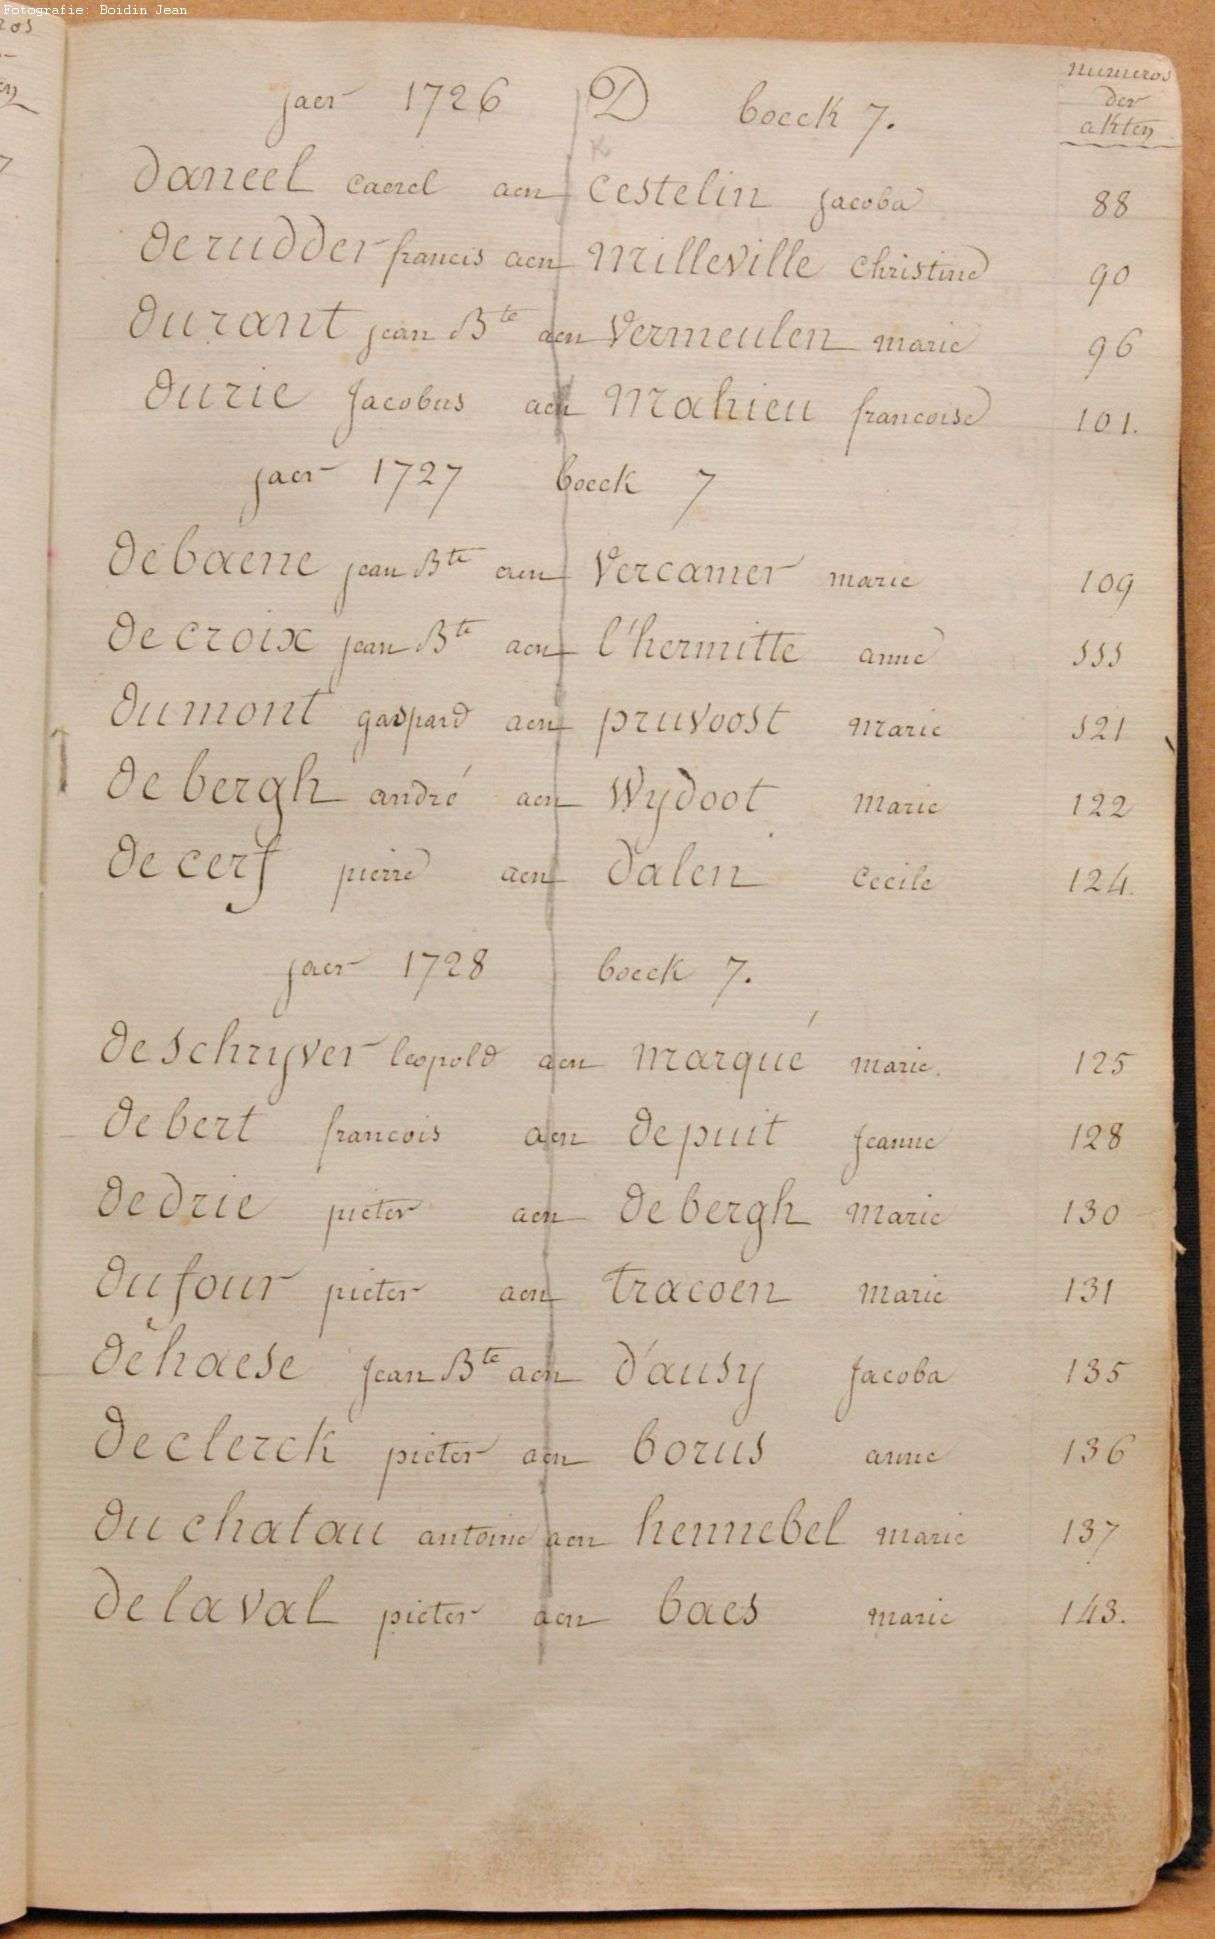 Fotografie: Boidin Jean
ros
jaer 1726 D boeck 7.
numeros
der
akten
daneel caerel aen Cestelin jacoba 88
derudder francis aen Milleville christine 90
durant jean Bte aen Vermeulen marie 96
durie Jacobus aen Mahieu francoise 101.
jaer 1727 boeck 7
debaene jean Bte aen Vercamer marie 109
decroix jean Bte aen l'hermitte anne 111
dumont gaspard aen pruvoost marie 121
debergh andré aen Wydoot marie 122
decerf pierre aen dalen cecile 124.
jaer 1728 boeck 7.
deschryver leopold aen marqué marie. 125
debert francois aen depuit jeanne 128
dedrie pieter aen debergh marie 130
dufour pieter aen tracoen marie 131
dehaese jean Bte aen d'ausy jacoba 135
declerck pieter aen borus anne 136
duchatau antoine aen hennebel marie 137
delaval pieter aen baes marie 143.